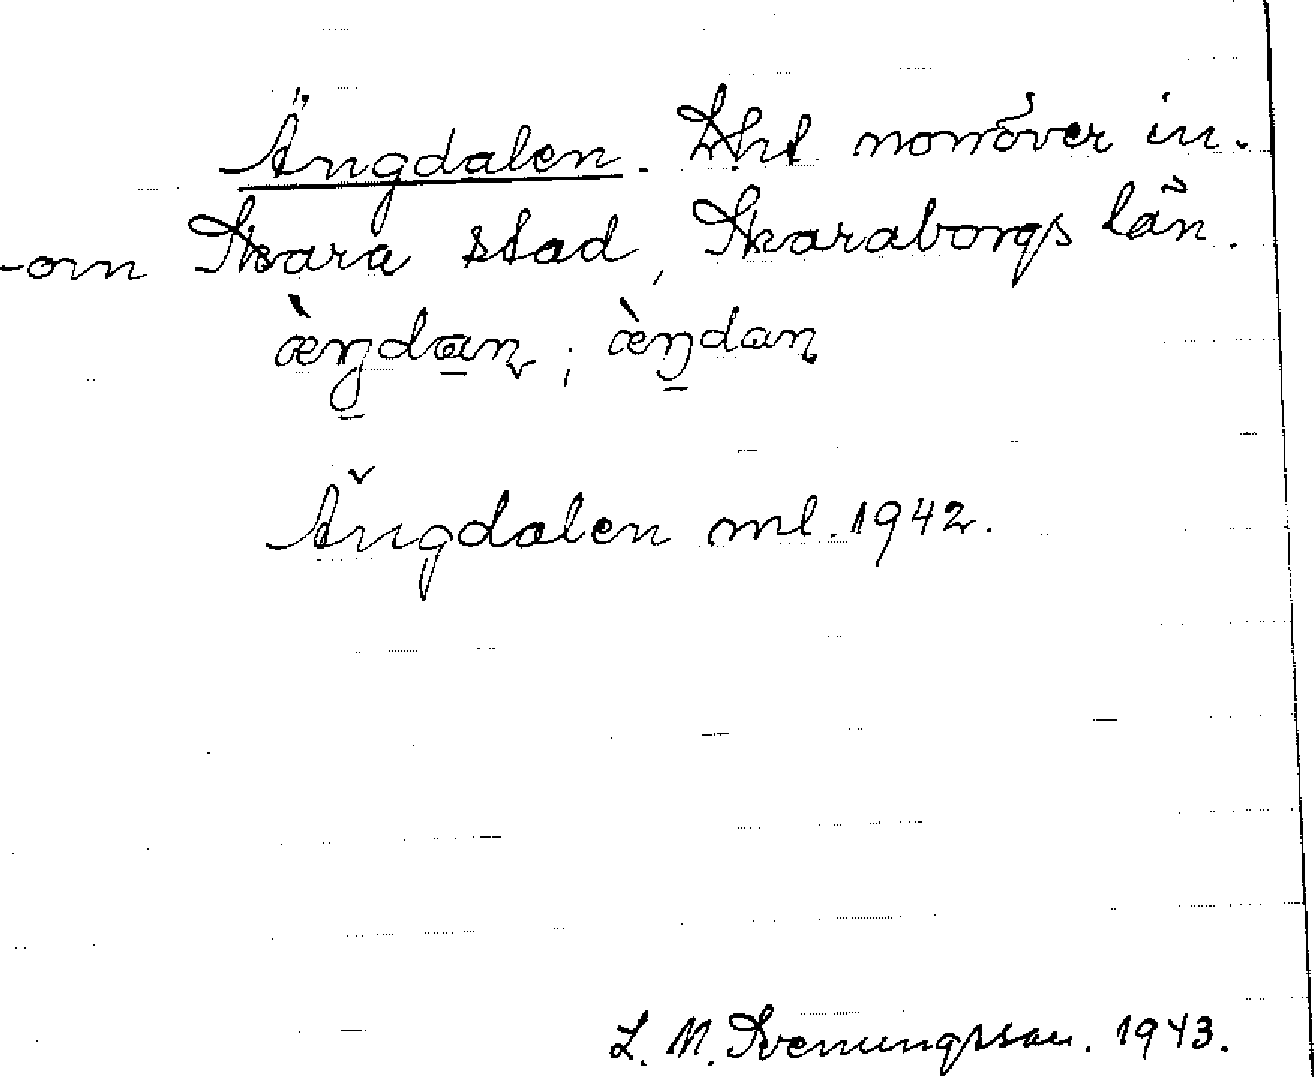 Ängdalen. Lht norröver in-
om Skara stad, Skaraborgs län.
æ̀ŋdan, ; æ̀ŋdan
Ängdalen ml. 1942.
L. M. Svenungsson. 1943.